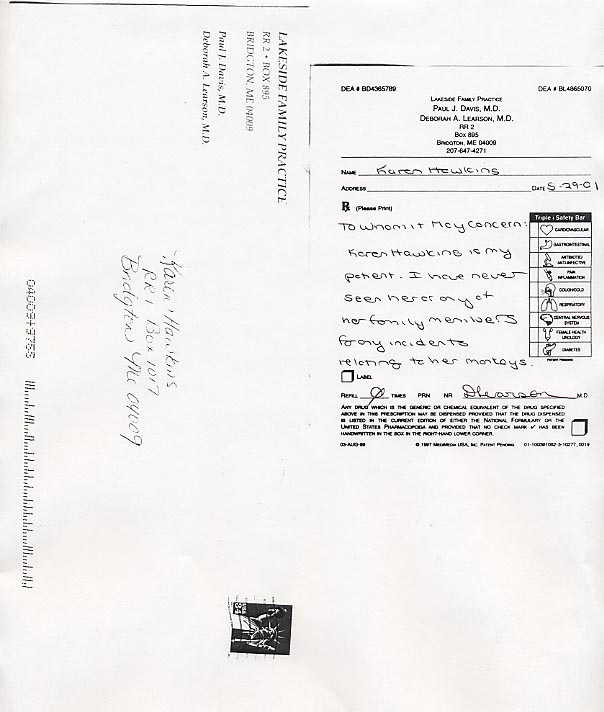 LAKESIDE FAMILY PRACTICE
RR 2 • BOX 895
BRIDGTON, ME 04009
Paul J. Davis, M.D.
Deborah A. Learson, M.D.
Karen Hawkins
RR 1 Box 1017
Bridgton Me 04009
USA
34
DEA # BD4365789 DEA # BL4865070
LAKESIDE FAMILY PRACTICE
PAUL J. DAVIS, M.D.
DEBORAH A. LEARSON, M.D.
RR 2
BOX 895
BRIDGTON, ME 04009
207-647-4271
NAME Karen Hawkins
ADDRESS DATE 5-29-01
℞ (Please Print)
To whom it May concern:
Karen Hawkins is my
patient. I have never
seen her or any of
her family members
for any incidents
relating to her monkeys.
Triple i Safety Bar
CARDIOVASCULAR
GASTROINTESTINAL
ANTIBIOTIC
ANTI-INFECTIVE
PAIN
INFLAMMATION
COUGH/COLD
RESPIRATORY
CENTRAL NERVOUS
SYSTEM
FEMALE HEALTH
UROLOGY
DIABETES
PATENT PENDING
LABEL
REFILL 0 TIMES PRN NR DLearson M.D.
ANY DRUG WHICH IS THE GENERIC OR CHEMICAL EQUIVALENT OF THE DRUG SPECIFIED
ABOVE IN THIS PRESCRIPTION MAY BE DISPENSED PROVIDED THE DRUG DISPENSED
IS LISTED IN THE CURRENT EDITION OF EITHER THE NATIONAL FORMULARY OR THE
UNITED STATES PHARMACOPOEIA AND PROVIDED THAT NO CHECK MARK ✓ HAS BEEN
HANDWRITTEN IN THE BOX IN THE RIGHT-HAND LOWER CORNER.
03-AUG-99 © 1997 MEDIMEDIA USA, INC. PATENT PENDING